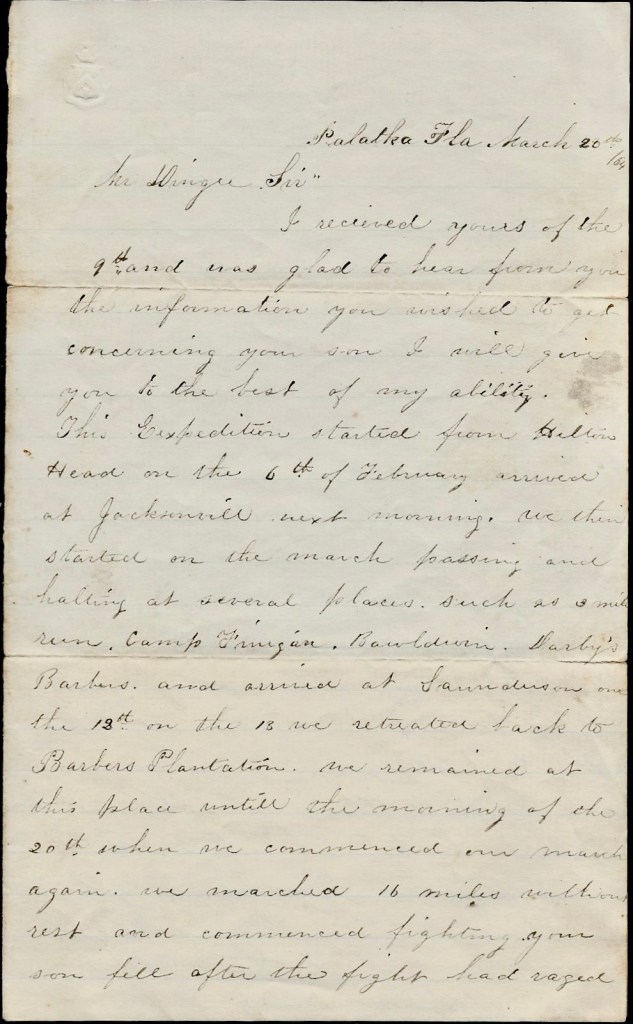 Palatka Fla March 20th /64
Mr Dingee Sir"
I recieved yours of the
9th and was glad to hear from you
the information you wished to get
concerning your son I will give
you to the best of my ability.
This Eexpedition started from Hilton
Head on the 6th of February arrived
at Jacksonvill next morning. we then
started on the march passing and
halting at several places. such as 3 mile
run, Camp Finigan. Bawldwin. Darby's
Barbers. and arrived at Saunderson on
the 12th on the 13 we retreated back to
Barbers Plantation. we remained at
this place untill the morning of the
20th when we commenced our march
again. we marched 16 miles without
rest and commenced fighting your
son fell after the fight had raged